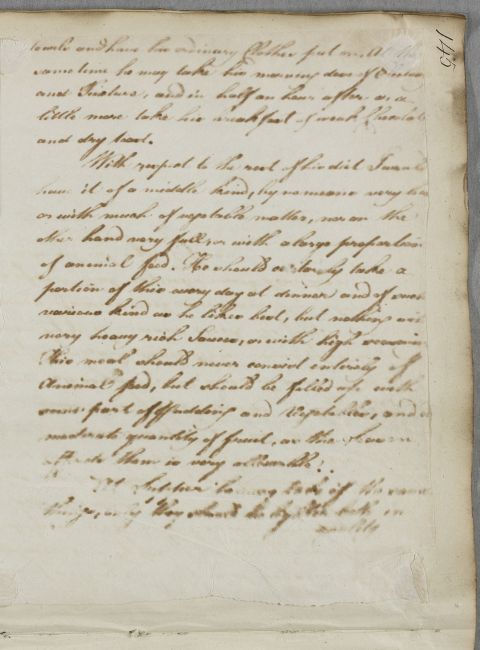 1145
towels and have his ordinary Clothes put on. At the
same time he may take his morning dose of
and Tincture, and in half an hour after or a
little more take his breakfast of weak Chocolate
and dry toast.
With respect to the rest of his diet I would
have it of a middle kind, by no means very
or with much of vegetable matter, nor on the
other hand very full or with a large proportion
of animal food. He should certainly take a
portion of this every day at dinner and of such
various kind as he likes best, but nothing with
very heavy rich Sauces, or with high seasoning
This meal should never consist entirely of
Animal food, but should be filled up with
some part of Pudding and Vegetables, and a
moderate quantity of fruit, as the season
affords them is very allowable.
At Supper he may take of the same
things, only they should be by the both in